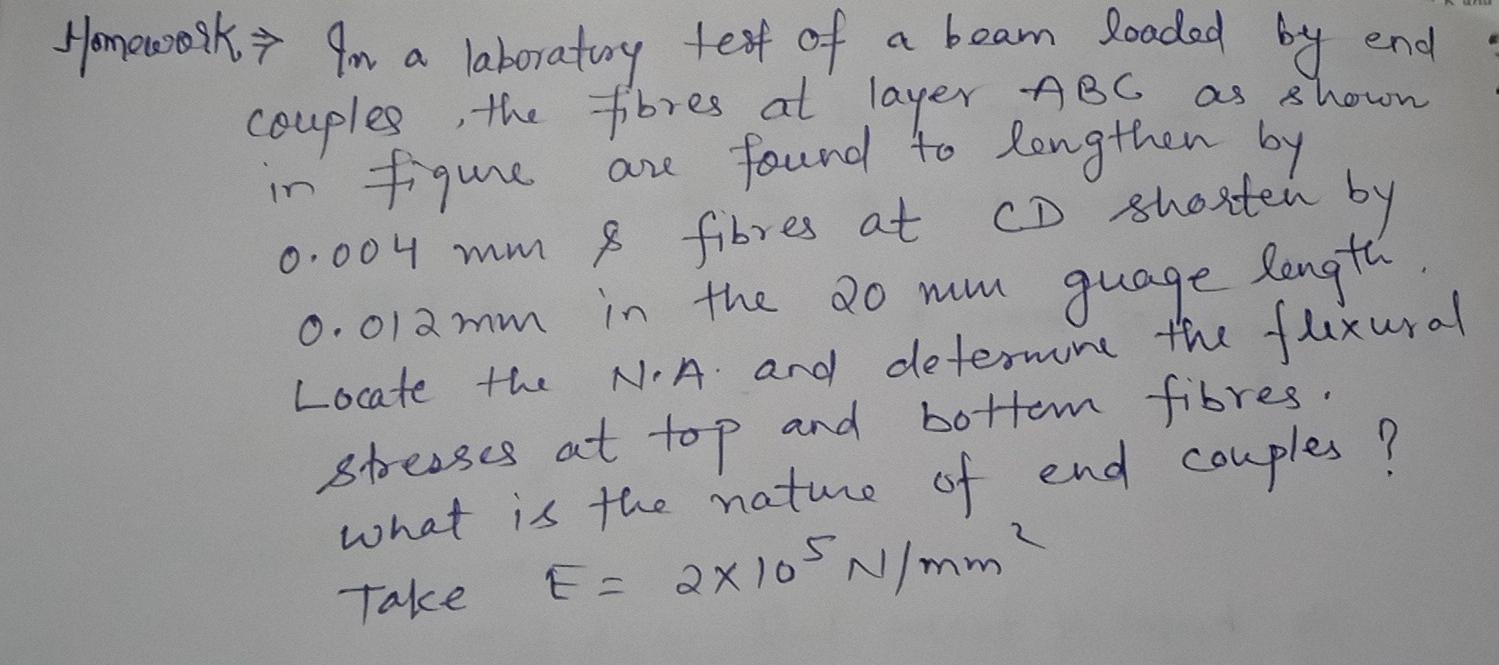 Homework ⇒ In a laboratory test of a beam loaded by end
couples, the fibres at layer ABC as shown
in figure are found to lengthen by
0.004 mm & fibres at CD shorten by
0.012 mm in the 20 mm guage length.
Locate the N.A. and determine the flexural
stresses at top and bottom fibres.
what is the nature of end couples?
Take E = 2×10⁵ N/mm²